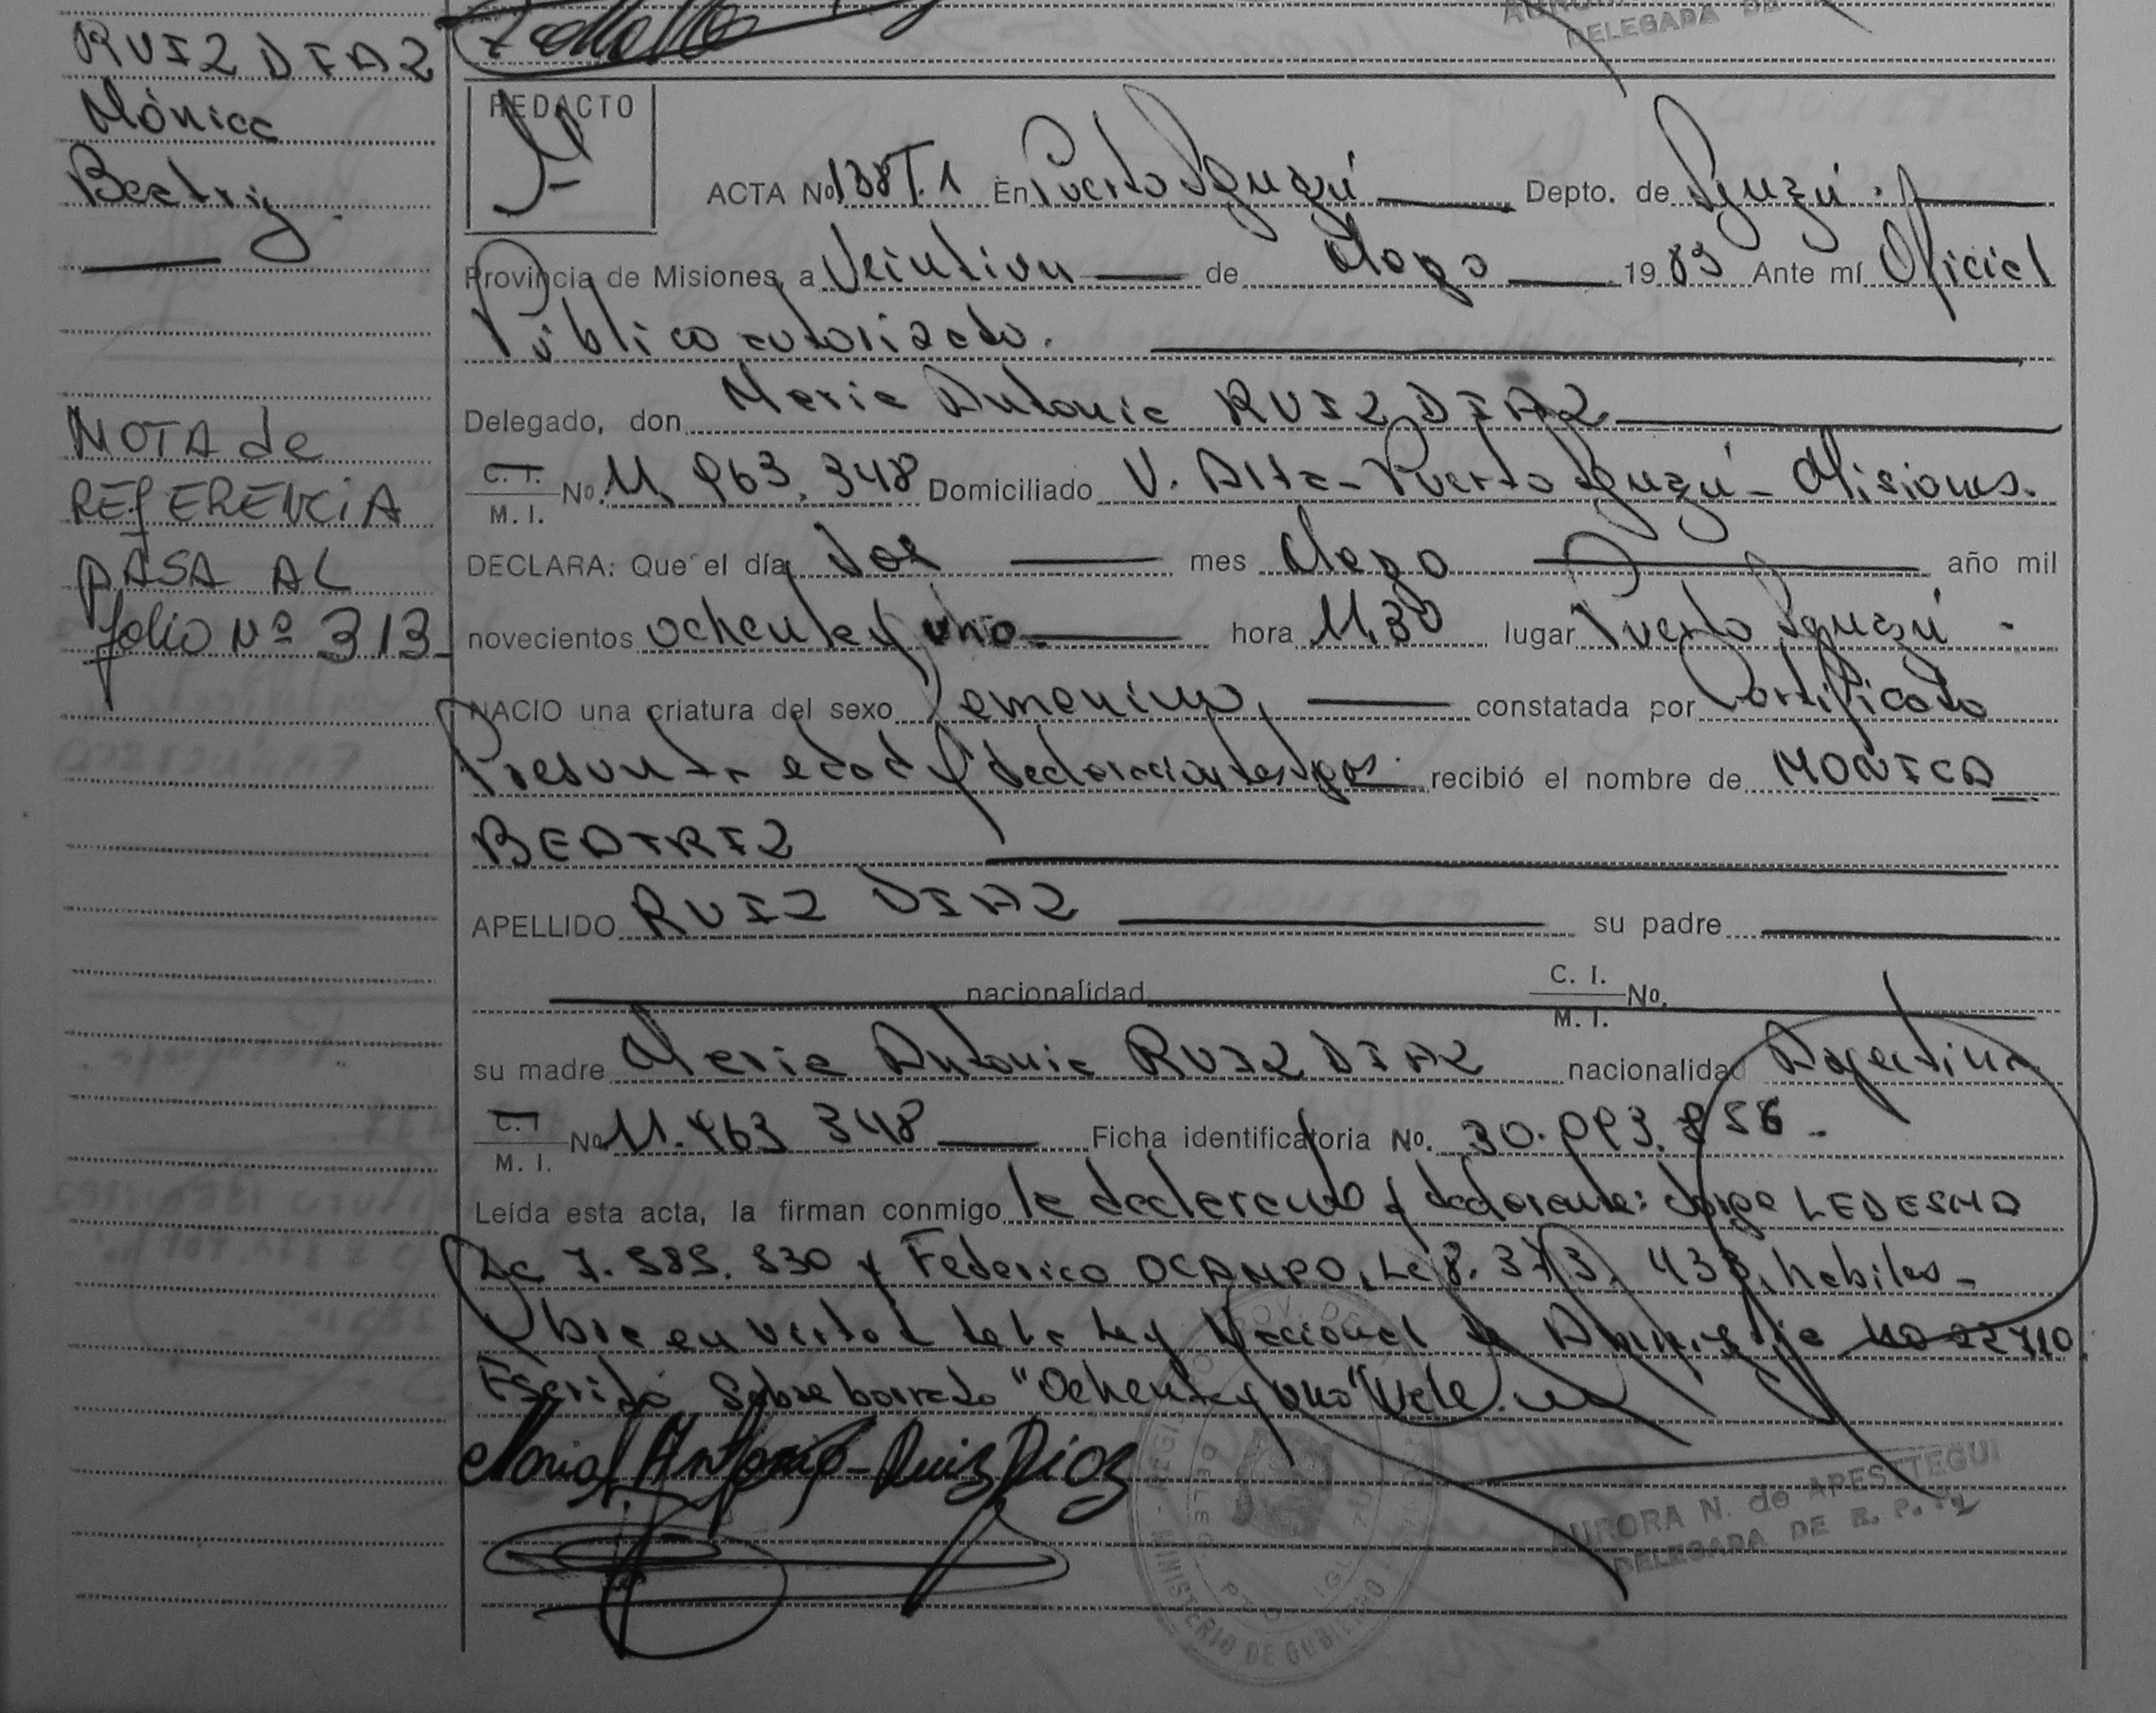 DELEGADA DE
RUIZ DIAZ
Mónica
Beatriz.
NOTA de
REFERENCIA
PASA AL
folio Nº 313
REDACTO
ACTA Nº 138 T.1 En Puerto Iguazú Depto. de Iguazú.
Provincia de Misiones, a Veintiun de Mayo 1983 Ante mí Oficial
Público autorizado.
Delegado, don Maria Antonia RUIZ DIAZ
C. I. M. I. No. 11.963.348 Domiciliado V. Alta - Puerto Iguazú - Misiones.
DECLARA: Que el día dos mes Mayo año mil
novecientos ochenta y uno hora 11,30 lugar Puerto Iguazú -
NACIO una criatura del sexo femenino, constatada por Certificado
Presunta edad y declaracion testigos. recibió el nombre de MONICA
BEATRIZ
APELLIDO RUIZ DIAZ su padre
nacionalidad C. I. M. I. No.
su madre Maria Antonia RUIZ DIAZ nacionalidad Argentina
C. I. M. I. No 11.963 348 Ficha identificatoria No. 30.093.856.
Leída esta acta, la firman conmigo la declarante y Jorge LEDESMA
7.585.530 y Federico OCAMPO, Le 8.373.433, habiles -
Obra en virtud de la Ley Nacional de Amnistia No 22710.
Escrito Sobre borrado "Ochenta y uno" Vale.
Maria Antonia Ruiz Diaz
AURORA N. de APESTTEGUI
DELEGADA DE R. P.
MINISTERIO DE GOBIERNO